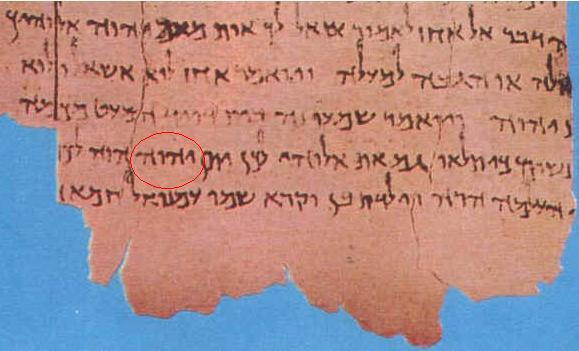 דבר אל אחז לאמור שאל לך אות מאת יהוה אלוהיך
או הגבה למעלה ויואמר אחז לוא אשאל ולוא
יהוה ויואמר שמעו נא בית דויד המעט
כי תלאו גם את אלוהי לכן יתן יהוה הוא
העלמה הרה וילדת בן וקרא שמו עמנואל חמא